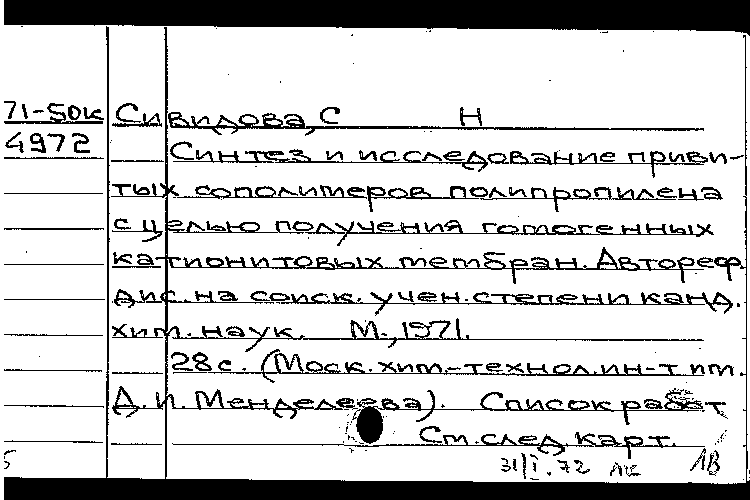 71-50к Сивидова, С Н
4972 Синтез и исследование приви-
тых сополимеров полипропилена
с целью получения гомогенных
катионитовых мембран. Автореф.
дис. на соиск. учен. степени канд.
хим. наук. М., 1971.
28 с. (Моск. хим.-технол. ин-т им.
Д. И. Менделеева). Список работ
См. след. карт.
31/I.72